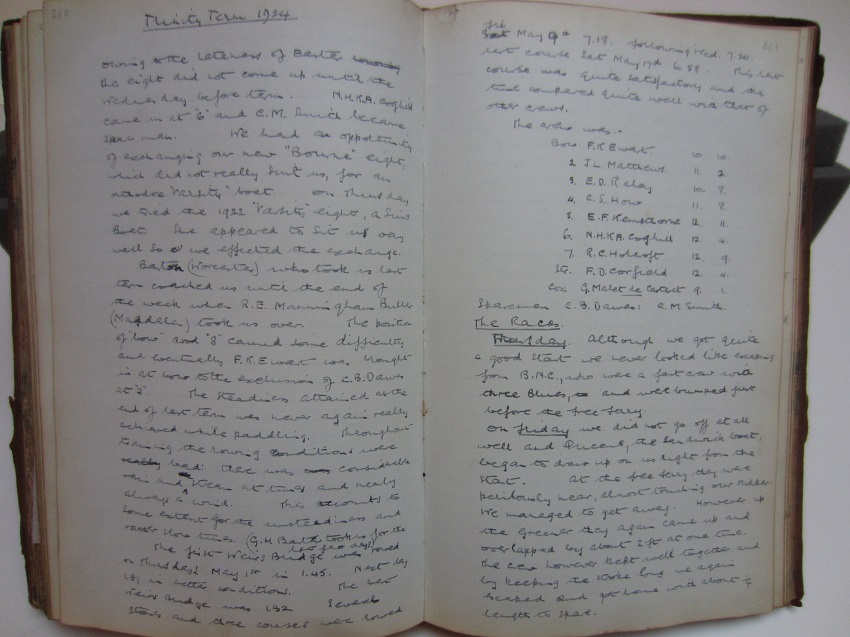 260
Trinity Term 1924
Owing to the lateness of Easter
the eight did not come up until the
Wednesday before term. N.H.K.A. Coghill
came in at "6" and C.M. Smith became
spare man. We had an opportunity
of exchanging our new "Bourne" eight,
which did not really suit us, for an
"Varsity" boat. On Thursday
we tried the 1922 "Varsity" eight, a Sims
Boat. She appeared to sit up very
well so we effected the exchange.
(Worcester) who took us last
term coached us until the end of
the week when R.E. Manningham Buller
(Magdalen) took us over. The position
of "bow" and "8" caused some difficulty
and eventually F.K. Ewart was brought
in at bow to the exclusion of C.B. Dawes
at "2". The steadiness attained at the
end of last term was never again really
achieved while paddling. Throughout
training the rowing conditions were
really bad: there was considerable
rain and stream at times and nearly
always a wind. This accounts to
some extent for the unsteadiness and
rather slow times. (G.H. took us for the
last few days)
The first Weirs Bridge was rowed
on Thursday May 1st in 1.45. Next day
1.31 in better conditions. The last
Weirs Bridge was 1.32 Several
starts and three courses were rowed
261
Fri May 9th 7.18. following Wed. 7.20.
last course Sat May 17th 6.58. This last
course was quite satisfactory and the
time compared quite well with that of
other crews.
The crew was:-
Bow F.K. Ewart 10. 10.
2. J.L. Matthews 11. 2.
3. E.D. 10. 8.
4. C.S. How 11. 8.
5. E.F. Kempthorne 12. 11.
6. N.H.K.A. Coghill 12. 4.
7. R.C. Holcroft 12. 9.
Str. F.D. Corfield 12. 4.
Cox G. Malet de Carteret 9. 1.
Sparemen C.B. Dawes: C.M. Smith.
The Races.
Thursday. Although we got quite
a good start we never looked like escaping
from B.N.C., who were a fast crew with
three Blues, and were bumped just
before the free ferry.
On Friday we did not go off at all
well and the Sandwich boat,
began to draw up on us right from the
start. At the free ferry they were
perilously near, almost touching our rudder.
We managed to get away. However up
the Greener they again came up and
overlapped by about 2 ft at one time.
The crew however kept well together and
by keeping the stroke long we again
escaped and got home with about ½
length to spare.